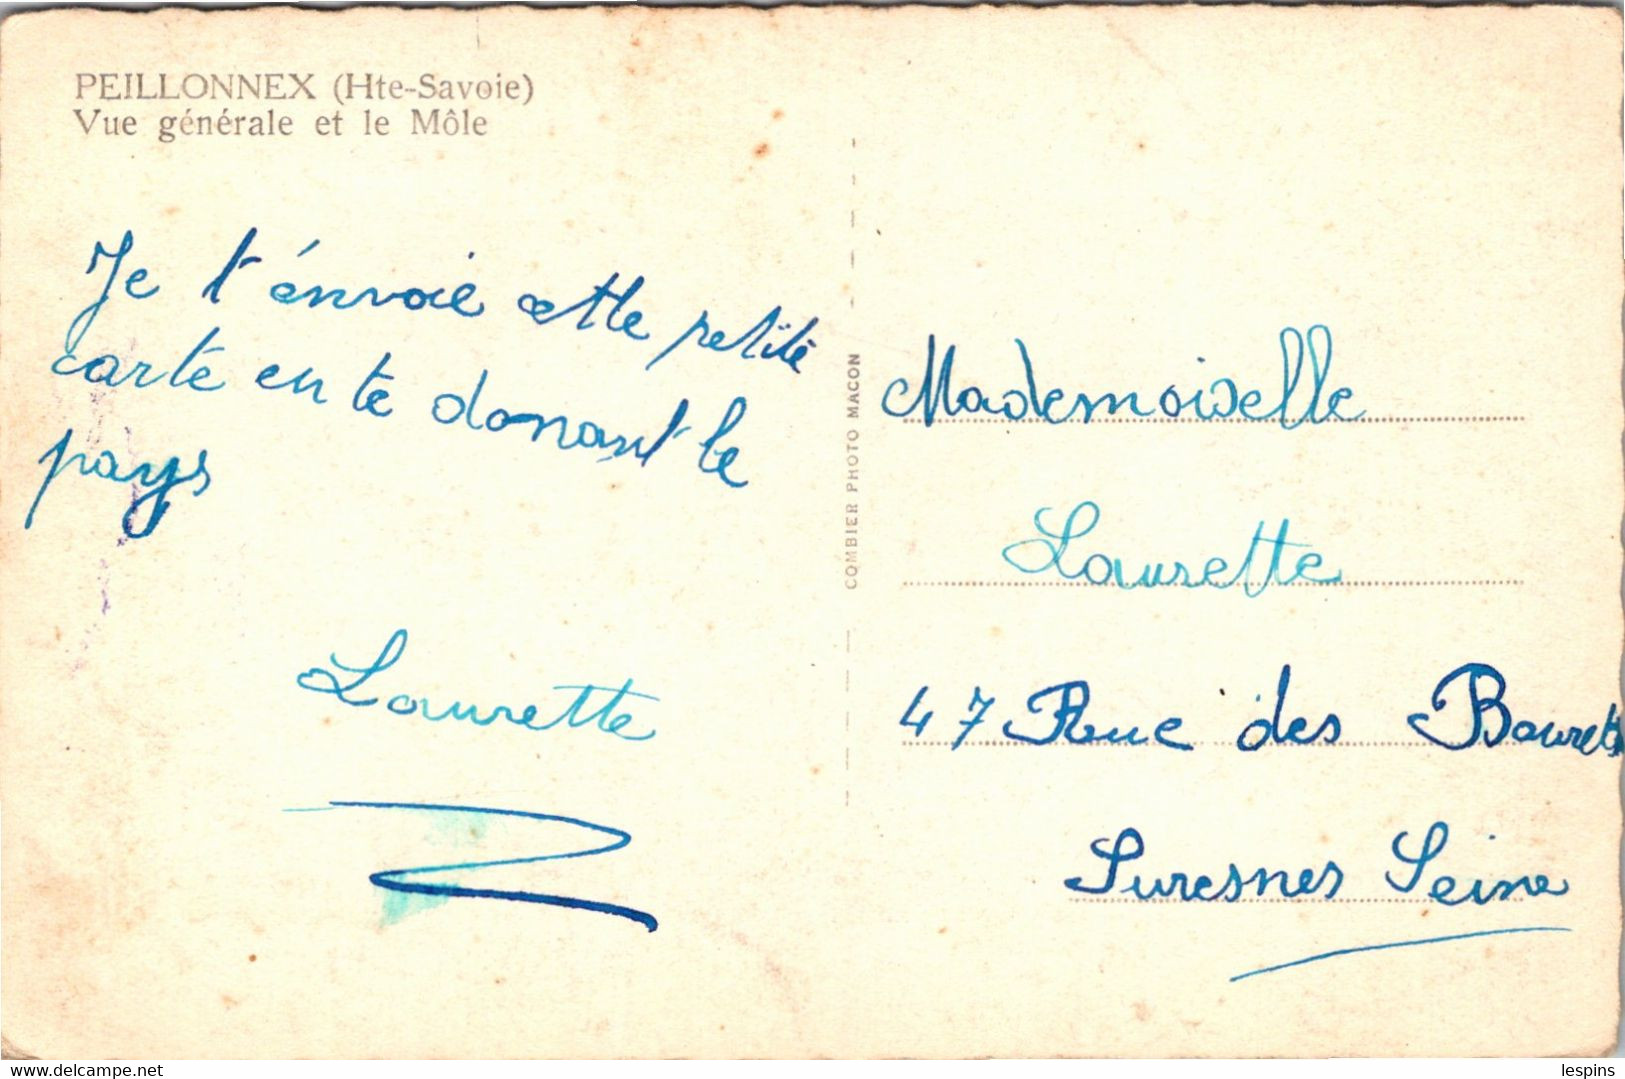 PEILLONNEX (Hte-Savoie)
Vue générale et le Môle
Je t'énvoie cette petite
carte en te donant le
pays
Laurette
COMBIER PHOTO MACON
Mademoiselle
Laurette
47 Rue des Bourets
Suresnes Seine
www.delcampe.net
lespins